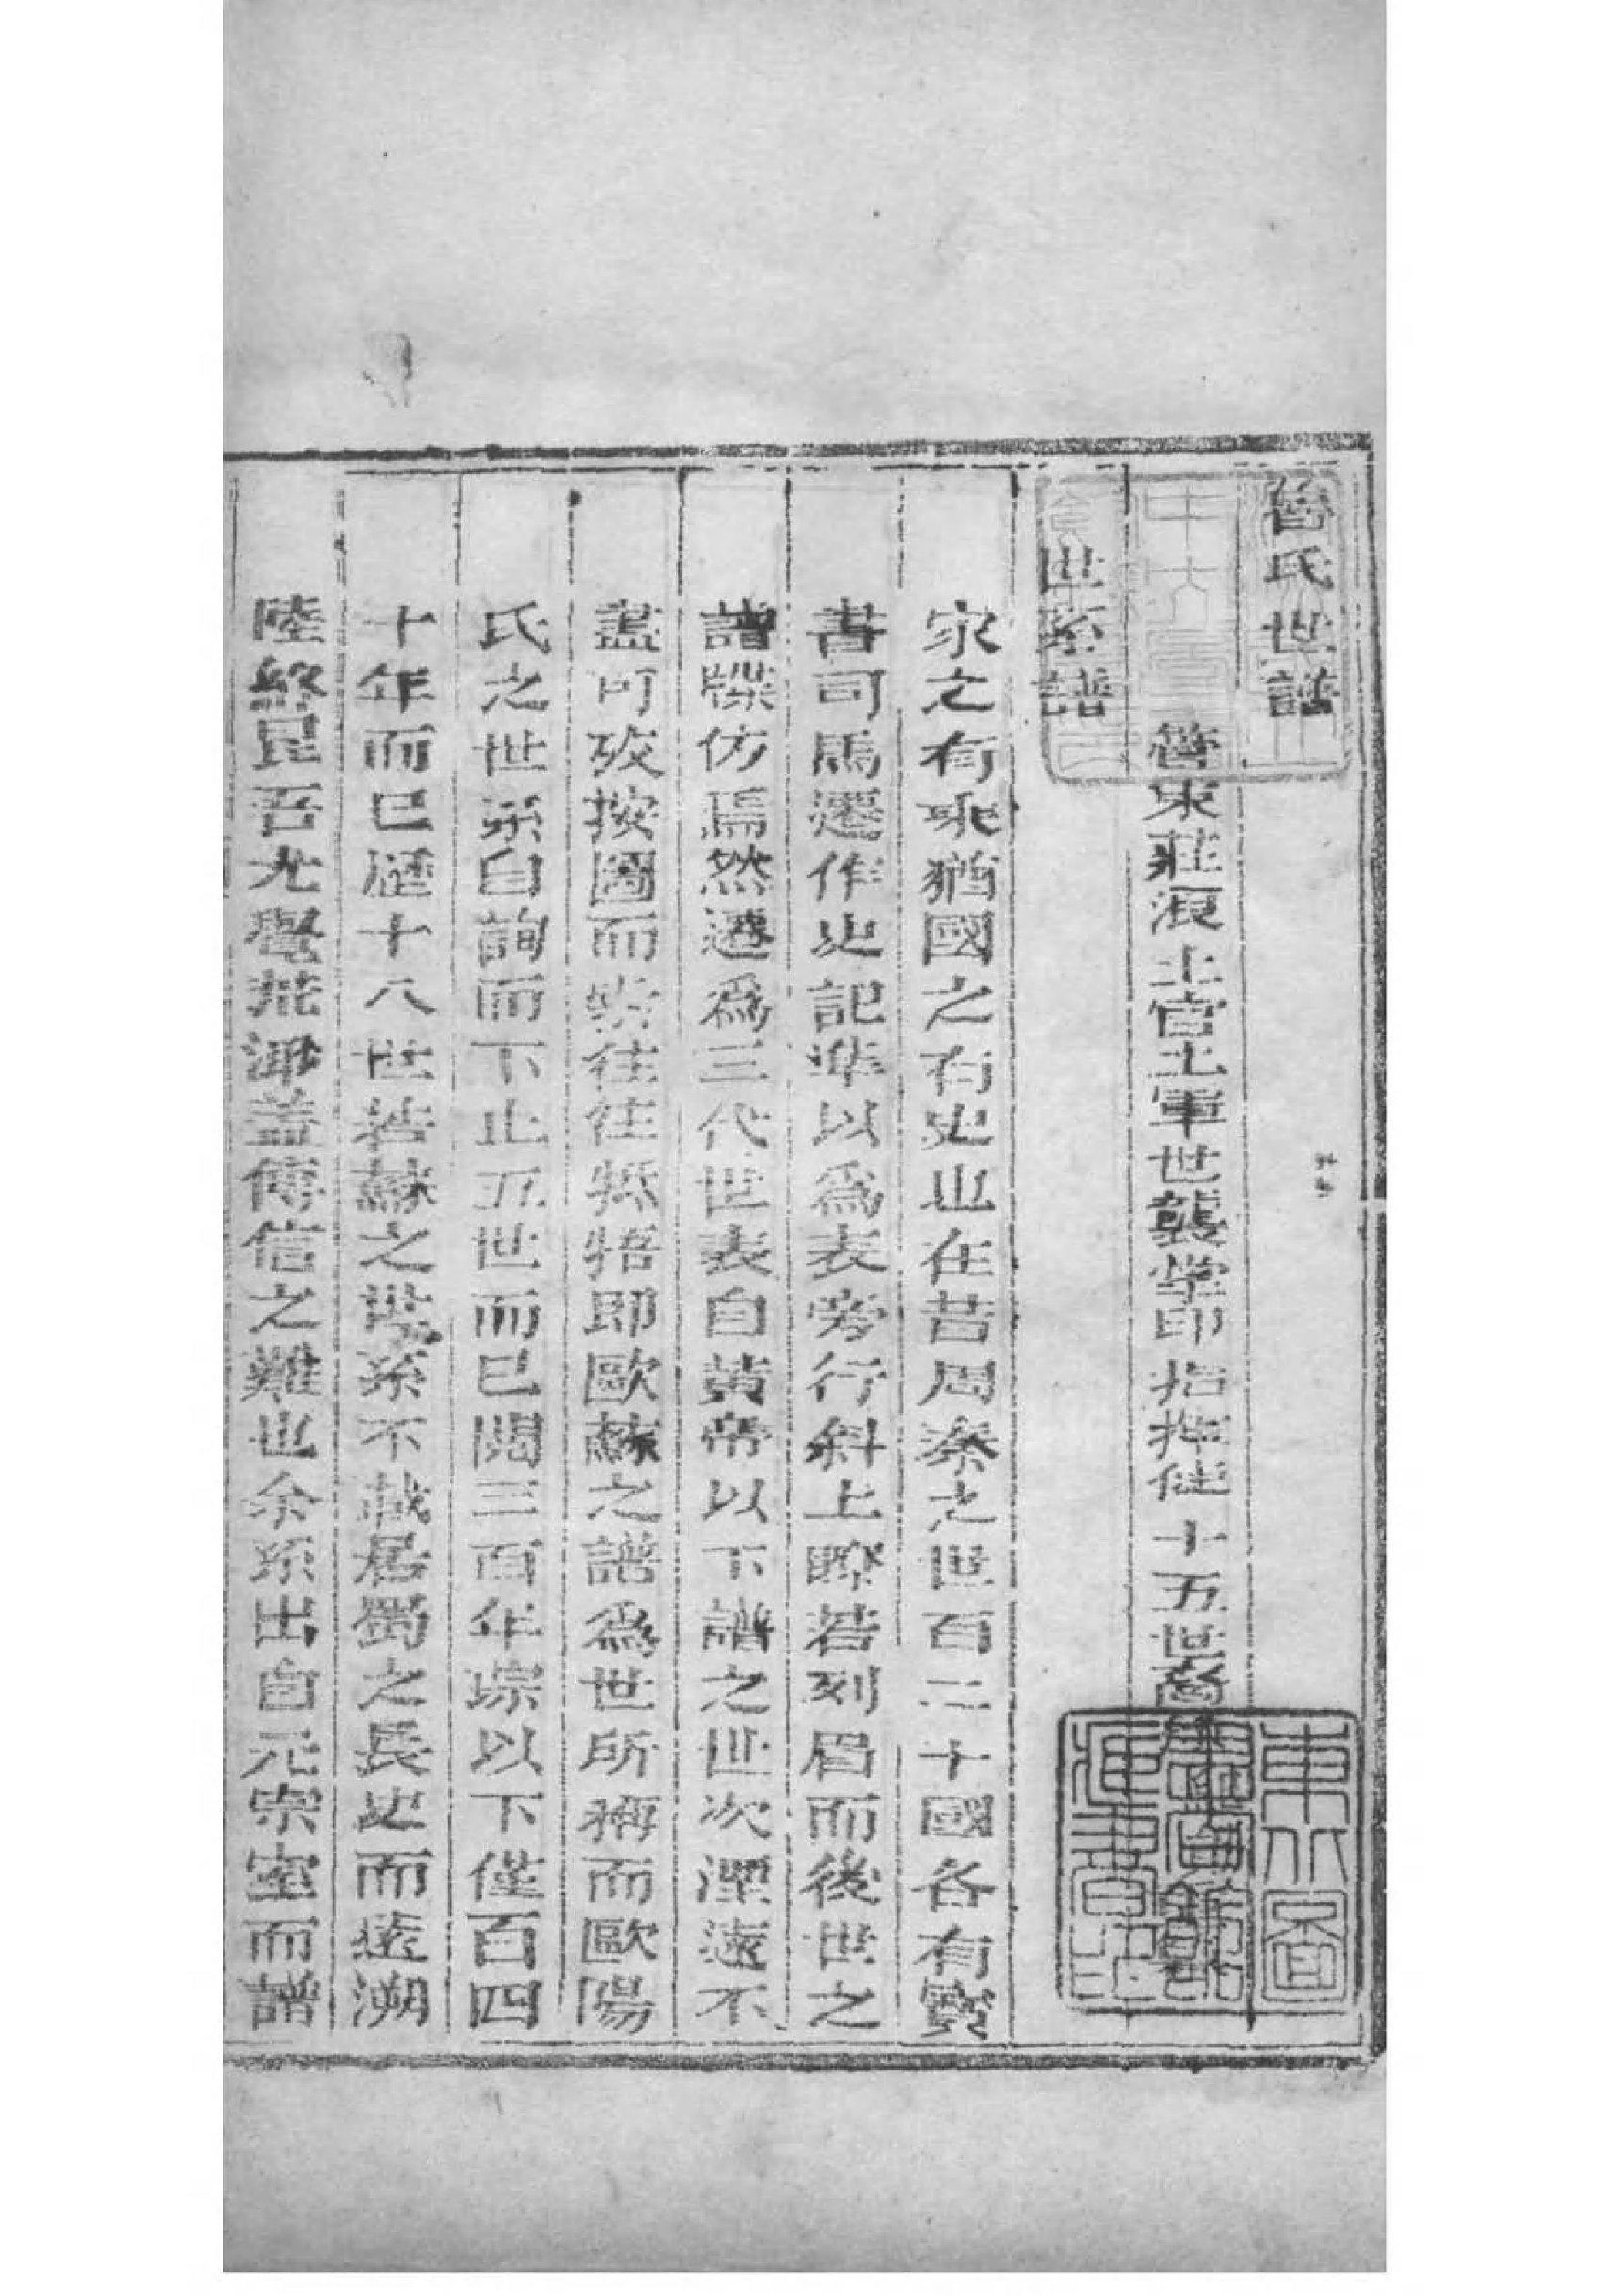 魯氏世譜
管東莊浪土官土軍世襲掌印指揮使十五世裔
世系譜
家之有乘猶國之有史也在昔周秦之世百二十國各有寳
書司馬遷作史記準以爲表旁行斜上瞭若列眉而後世之
譜牒仿焉然遷爲三代世表自黃帝以下譜之世次湮遠不
盡可攷按圖而索往往牴牾即歐蘇之譜爲世所稱而歐陽
氏之世系自詢而下止五世而已閱三百年琮以下僅百四
十年而已歷十八世若蘇之世系不載居蜀之長史而遠溯
陸終昆吾尤覺荒渺蓋傳信之難也余系出自元宗室而譜